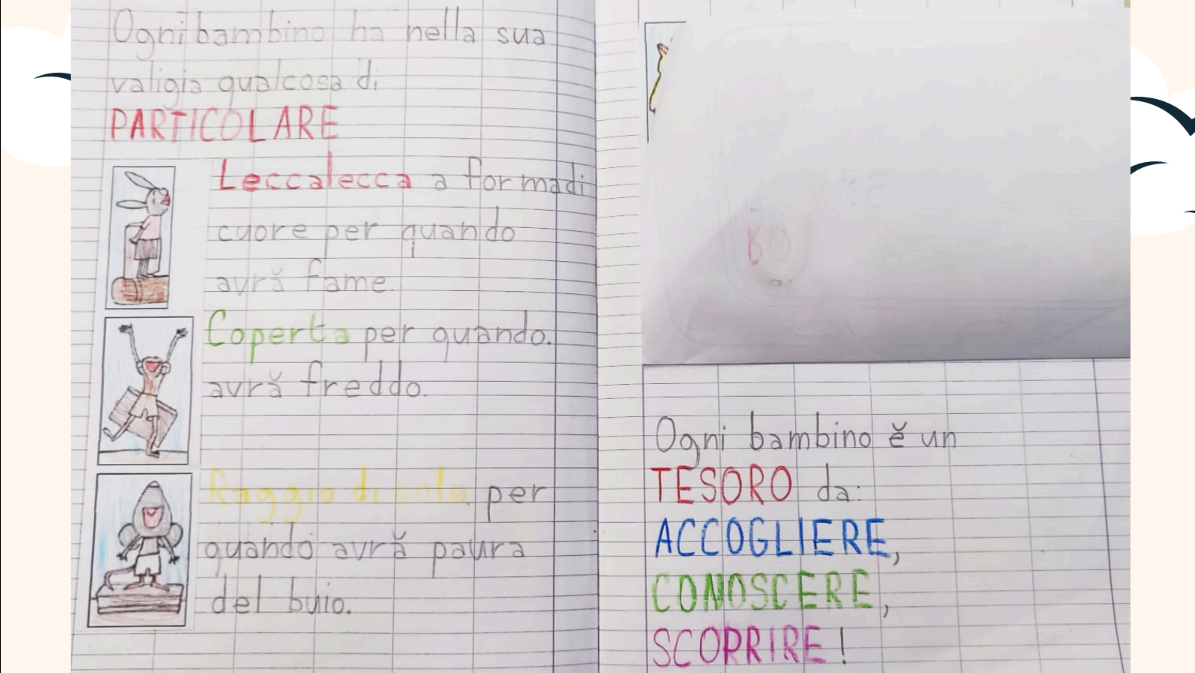 Ogni bambino ha nella sua
valigia qualcosa di
PARTICOLARE
Leccalecca a forma di
cuore per quando
avră fame.
Coperta per quando.
avră freddo.
Raggio di sole per
quando avră paura
del buio.
BO
Ogni bambino ĕ un
TESORO da:
ACCOGLIERE,
CONOSCERE,
SCOPRIRE!